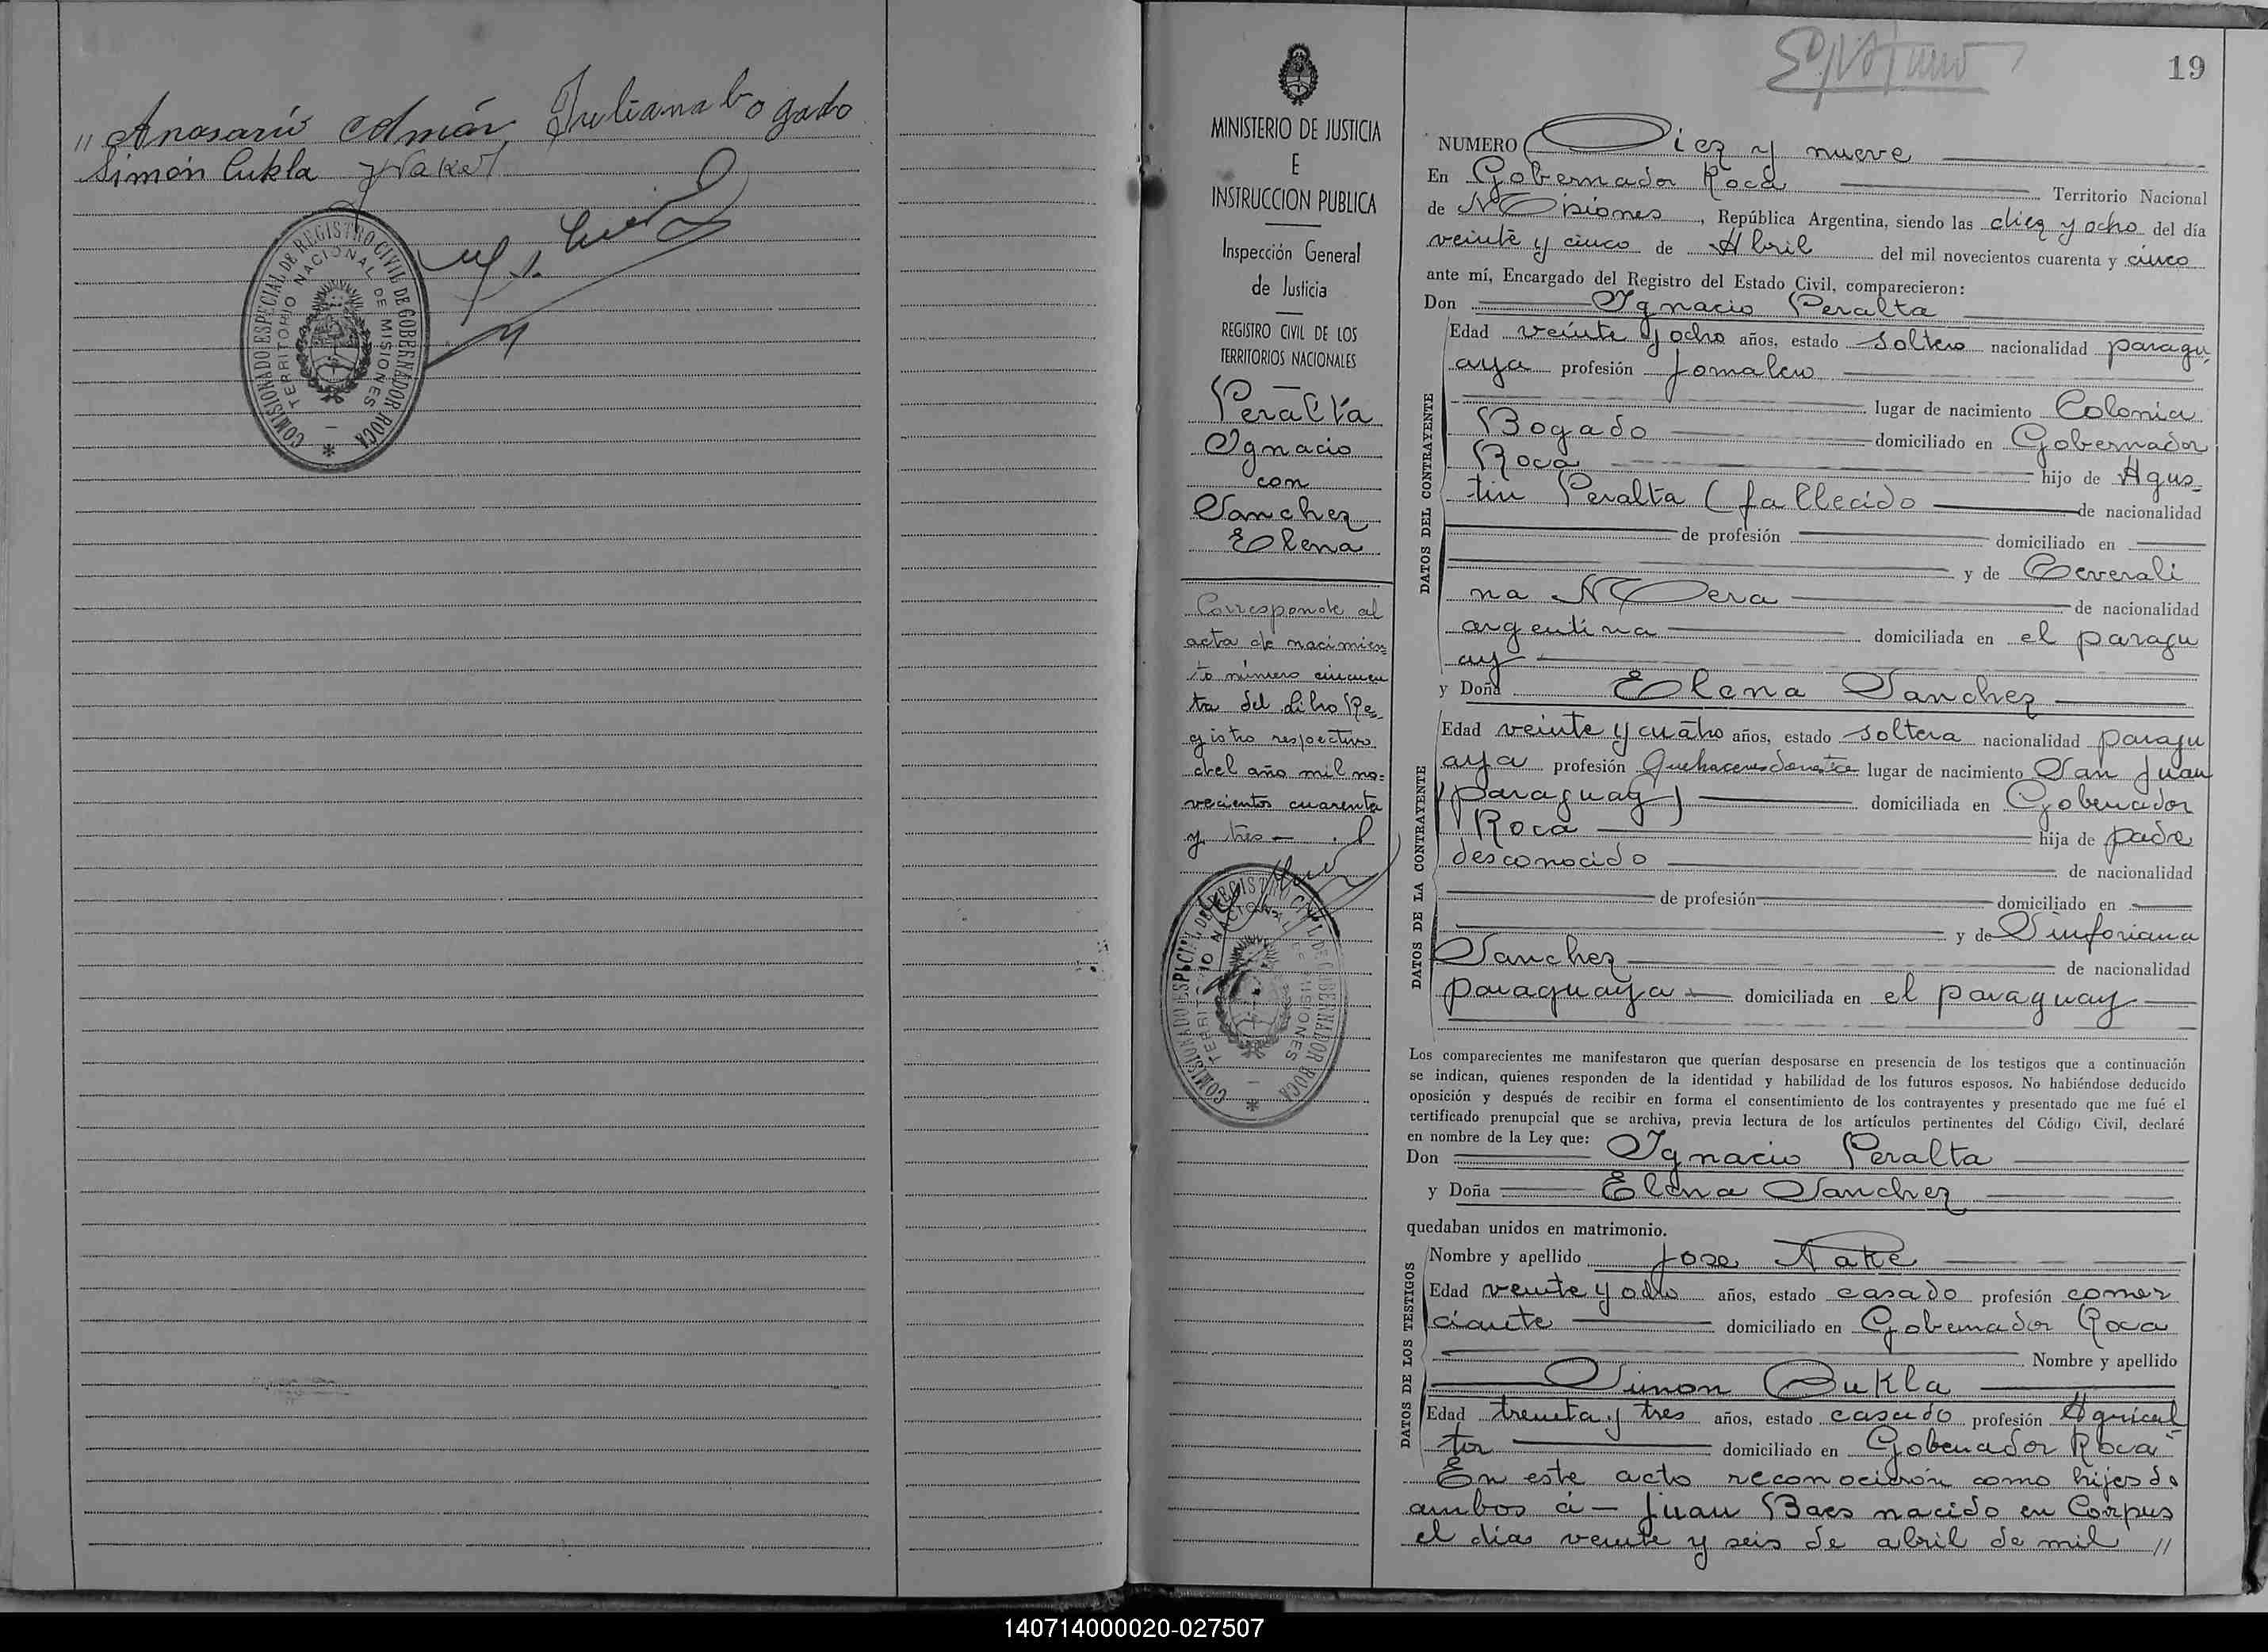 " Anasario Colmán Juliana bogado
Simón Cukla
COMISIONADO ESPECIAL DE REGISTRO CIVIL DE GOBERNADOR ROCA
TERRITORIO NACIONAL DE MISIONES
19
MINISTERIO DE JUSTICIA
E
INSTRUCCION PUBLICA
Inspección General
de Justicia
REGISTRO CIVIL DE LOS
TERRITORIOS NACIONALES
Peralta
Ignacio
con
Sanchez
Elena
Corresponde al
acta de nacimien=
to número cincuen
ta del Libro Re=
gistro respectivo
del año mil no=
vecientos cuarenta
y tres —
COMISIONADO ESPECIAL DE REGISTRO CIVIL DE GOBERNADOR ROCA
TERRITORIO NACIONAL DE MISIONES
NUMERO Diez y nueve
En Gobernador Roca Territorio Nacional
de Misiones, República Argentina, siendo las diez y ocho del día
veinte y cinco de Abril del mil novecientos cuarenta y cinco
ante mí, Encargado del Registro del Estado Civil, comparecieron:
Don Ignacio Peralta
Edad veinte y ocho años, estado soltero nacionalidad paragu
aya profesión Jornalero
lugar de nacimiento Colonia
Bogado domiciliado en Gobernador
Roca hijo de Agus=
tin Peralta (fallecido de nacionalidad
de profesión domiciliado en
y de Ceverali
na Mera de nacionalidad
argentina domiciliada en el paragu
ay
y Doña Elena Sanchez
Edad veinte y cuatro años, estado soltera nacionalidad paragu
aya profesión Quehaceres Domestico lugar de nacimiento San Juan
(Paraguay) domiciliada en Gobernador
Roca hija de padre
desconocido de nacionalidad
de profesión domiciliado en
y de Sinforiana
Sanchez de nacionalidad
paraguaya domiciliada en el paraguay
Los comparecientes me manifestaron que querían desposarse en presencia de los testigos que a continuación
se indican, quienes responden de la identidad y habilidad de los futuros esposos. No habiéndose deducido
oposición y después de recibir en forma el consentimiento de los contrayentes y presentado que me fué el
certificado prenupcial que se archiva, previa lectura de los artículos pertinentes del Código Civil, declaré
en nombre de la Ley que:
Don Ignacio Peralta
y Doña Elena Sanchez
quedaban unidos en matrimonio.
Nombre y apellido Jose Nake
Edad veinte y ocho años, estado casado profesión comer
ciante domiciliado en Gobernador Roca
Nombre y apellido
Simon Cukla
Edad treinta y tres años, estado casado profesión Agricul
tor domiciliado en Gobernador Roca
En este acto reconocieron como hijos de
ambos á — Juan Baes nacido en Corpus
el dia veinte y seis de abril de mil "
DATOS DEL CONTRAYENTE
DATOS DE LA CONTRAYENTE
DATOS DE LOS TESTIGOS
140714000020-027507